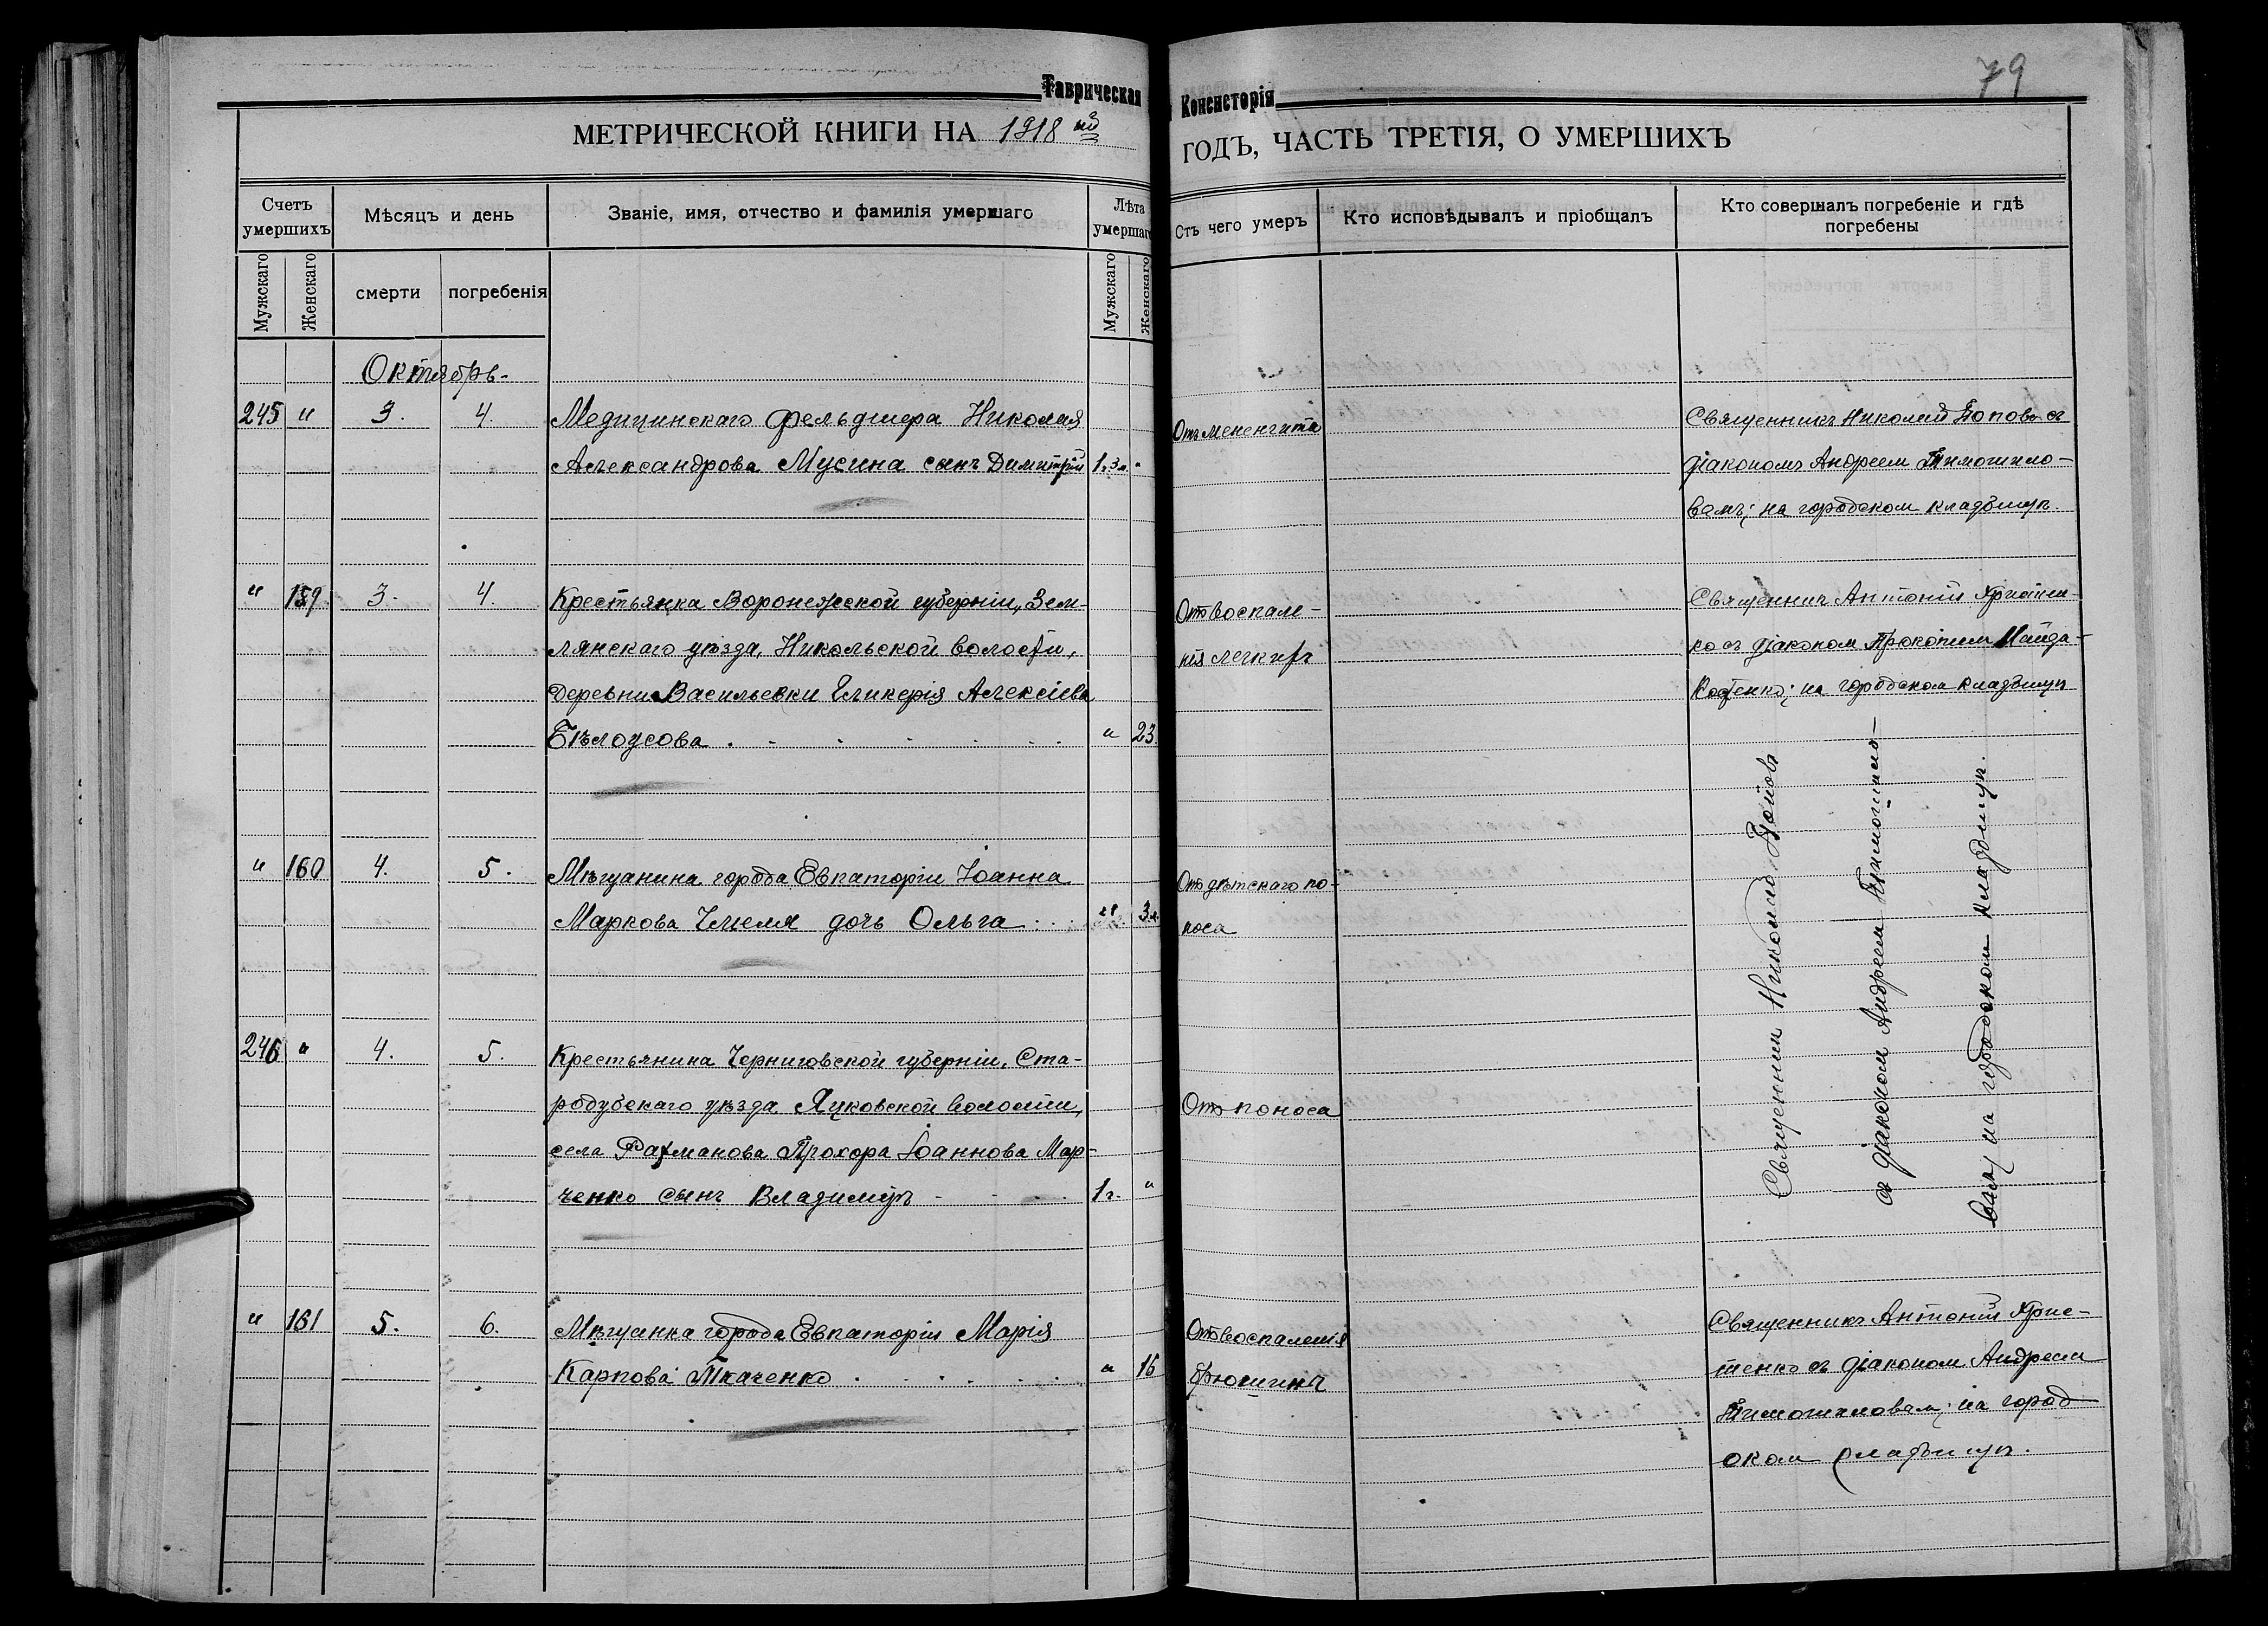 79
Таврическая Консисторія
МЕТРИЧЕСКОЙ КНИГИ НА 1918 ый ГОДЪ, ЧАСТЬ ТРЕТІЯ, О УМЕРШИХЪ
Счетъ умершихъ
Мѣсяцъ и день
Званіе, имя, отчество и фамилія умершаго
Лѣта умершаго
Отъ чего умеръ
Кто исповѣдывалъ и пріобщалъ
Кто совершалъ погребеніе и гдѣ погребены
Мужскаго
Женскаго
смерти
погребенія
Мужскаго
Женскаго
Октябрь-
245 " 3. 4.
Медицинскаго фельдшера Николая
Александрова Мусина сынъ Димитрій 1 г. 3 м. "
Отъ менингита
Священникъ Николай Поповъ съ
діакономъ Андреем Тимошило-
вемъ; на городском кладбищѣ.
" 159. 3. 4.
Крестьянка Воронежской губерніи, Зем-
лянскаго уѣзда, Никольской волости,
деревни Васильевки Гликерія Алексіева
Бѣлоусова . " 23.
Отъ воспале-
нія легкихъ
Священникъ Антоній Христен-
ко съ діаконом Прокопіем Майда-
; на городском кладбищѣ
" 160 4. 5.
Мѣщанина города Евпаторіи Іоанна
Маркова дочь Ольга " 3 м.
Отъ дѣтскаго по-
носа
Священник Николай Поповъ
съ діаконом Андреем Тимошило-
вем; на городском кладбищѣ.
246 " 4. 5.
Крестьянина Черниговской губерніи, Ста-
родубскаго уѣзда Яцковской волости,
села Рахманова Прохора Іоаннова Мар-
ченко сынъ Владимиръ - 1 г. "
Отъ поноса
" 161 5. 6.
Мѣщанка города Евпаторіи Марія
Карпова Ткаченко . " 16
Отъ воспаленія
брюшины
Священникъ Антоній Хрис-
тенко съ діаконом Андреем
Тимошиловем; на город
ском кладбищѣ.